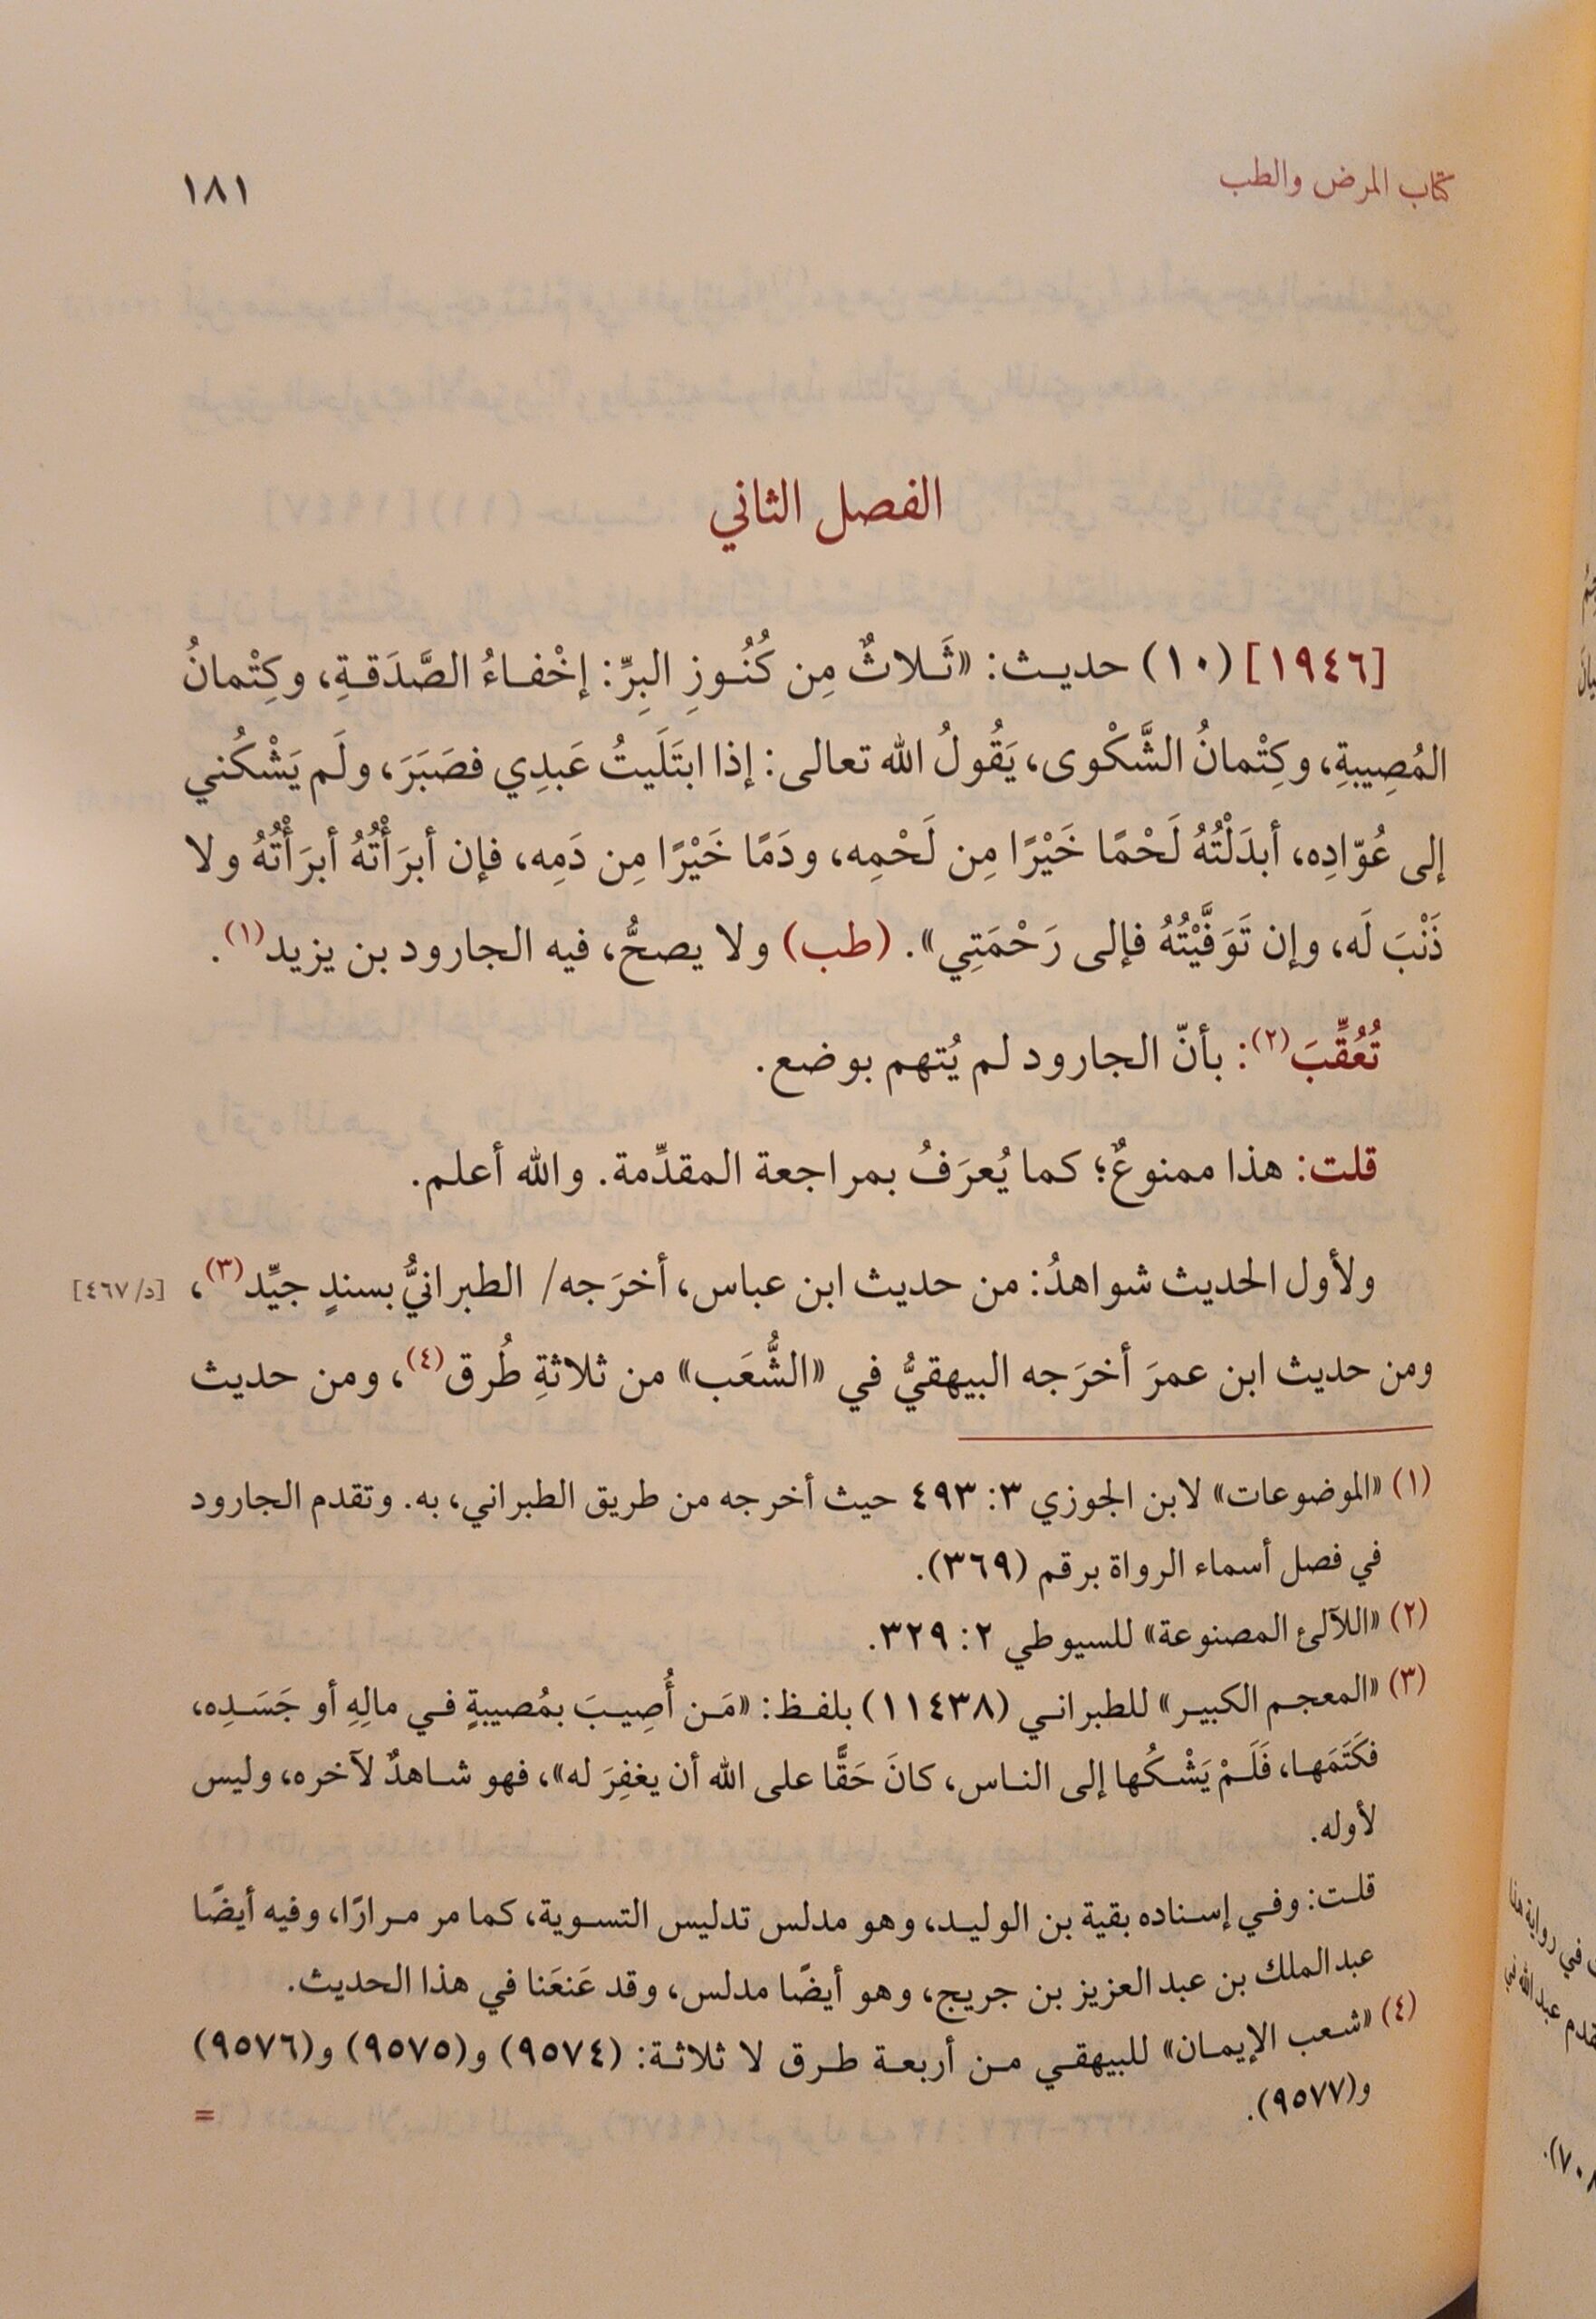 كتاب المرض والطب
١٨١
الفصل الثاني
[١٩٤٦] (١٠) حديث: «ثَلاثٌ مِن كُنُوزِ البِرِّ: إخْفاءُ الصَّدَقةِ، وكِتْمانُ
المُصِيبةِ، وكِتْمانُ الشَّكْوى، يَقُولُ الله تعالى: إذا ابتَلَيتُ عَبدِي فصَبَرَ، ولَم يَشْكُني
إلى عُوّادِه، أبدَلْتُهُ لَحْمًا خَيْرًا مِن لَحْمِه، ودَمًا خَيْرًا مِن دَمِه، فإن أبرَأْتُهُ أبرَأْتُهُ ولا
ذَنْبَ لَه، وإن تَوَفَّيْتُهُ فإلى رَحْمَتِي». (طب) ولا يصحُّ، فيه الجارود بن يزيد(١).
تُعُقِّبَ(٢): بأنّ الجارود لم يُتهم بوضع.
قلت: هذا ممنوعٌ؛ كما يُعرَفُ بمراجعة المقدِّمة. والله أعلم.
ولأول الحديث شواهدُ: من حديث ابن عباس، أخرَجه/ الطبرانيُّ بسندٍ جيِّد(٣)، [د/٤٦٧]
ومن حديث ابن عمرَ أخرَجه البيهقيُّ في «الشُّعَب» من ثلاثةِ طُرق(٤)، ومن حديث
(١) «الموضوعات» لابن الجوزي ٣: ٤٩٣ حيث أخرجه من طريق الطبراني، به. وتقدم الجارود
في فصل أسماء الرواة برقم (٣٦٩).
(٢) «اللآلئ المصنوعة» للسيوطي ٢: ٣٢٩.
(٣) «المعجم الكبير» للطبراني (١١٤٣٨) بلفظ: «مَن أُصِيبَ بمُصيبةٍ في مالِهِ أو جَسَدِه،
فكَتَمَها، فَلَمْ يَشْكُها إلى الناس، كانَ حَقًّا على الله أن يغفِرَ له»، فهو شاهدٌ لآخره، وليس
لأوله.
قلت: وفي إسناده بقية بن الوليد، وهو مدلس تدليس التسوية، كما مر مرارًا، وفيه أيضًا
عبد الملك بن عبد العزيز بن جريج، وهو أيضًا مدلس، وقد عَنعَنا في هذا الحديث.
(٤) «شعب الإيمان» للبيهقي من أربعة طرق لا ثلاثة: (٩٥٧٤) و(٩٥٧٥) و(٩٥٧٦)
و(٩٥٧٧).
=